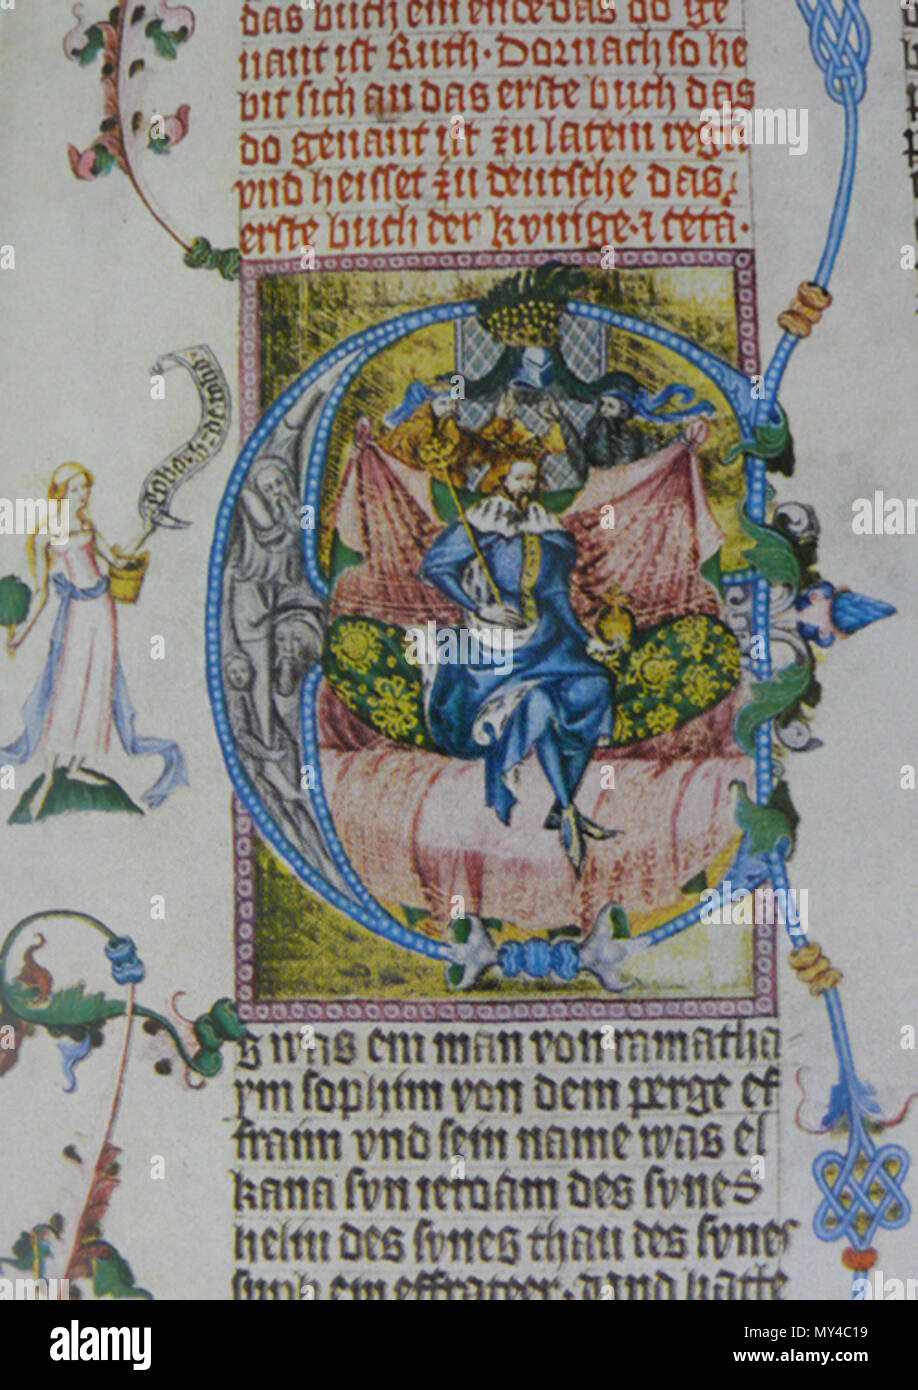 das buch ein ende das do ge
nant ist Ruth · Dornach so he
bit sich an das erste buch das
do genant ist zu latein regū
vnd heisset zu deutsche das
erste buch der kvnige · ⁊ cetā ·
s was ein man von ramatha
ym sophim von dem perge ef
fraim vnd sein name was el
kana svn ieroam des synes
heliu des synes thau des synes
suph ein effrateer · vnd hatte
alamy
Image ID: MY4C19
www.alamy.com